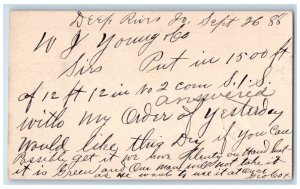 Deep River Ia. Sept 26 88
W J Young & Co
Sirs Put in 1500 ft
of 12 ft 12 in to 2 com S.1.S.
answered
with my Order of Yesterday
Would like this Dry if you Can
Possibly get it we have plenty on Hand but
it is Green and Our man will not take it
as he wants to use it at once
& Cox